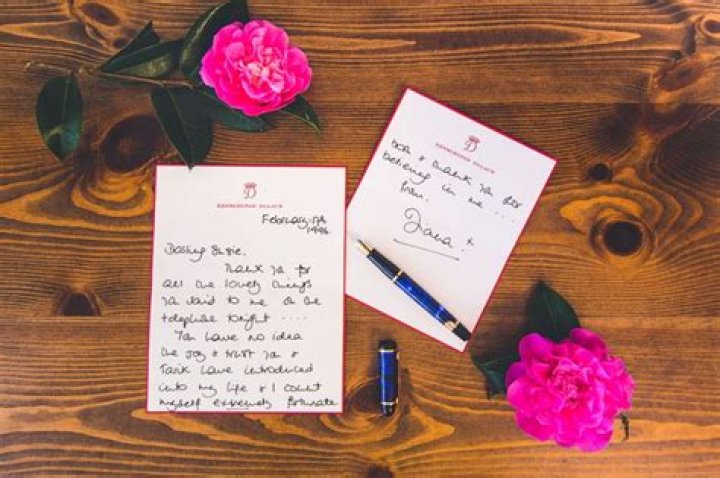 D
KENSINGTON PALACE
February 17th
1996.
Darling Susie,
Thank you for
all the lovely things
you said to me on the
telephone tonight ....
You have no idea
the joy & trust you &
Tarik have introduced
into my life & I count
myself extremely fortunate
D
KENSINGTON PALACE
& thank you for
believing in me ...
from,
Diana. x